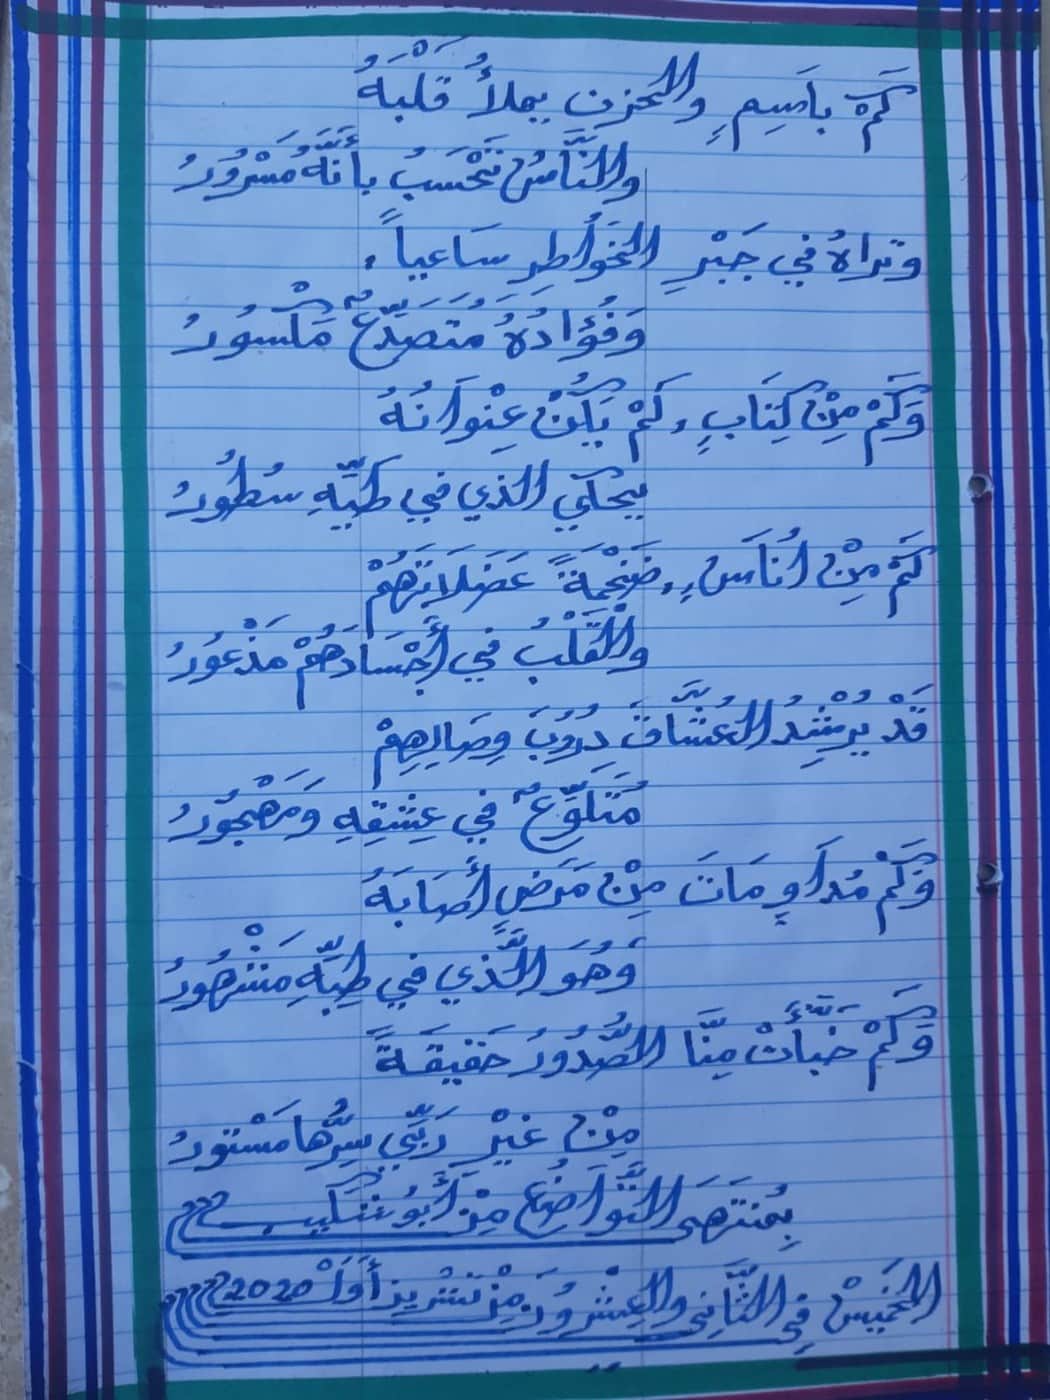 كَمْ باسِمٍ والحزن يملأُ قَلْبَهُ
والنَّاسُ تَحْسَبُ بأنَّهُ مَسْرُورُ
وتراهُ في جَبْرِ الخَواطِرِ سَاعياً،
وَفُؤادُهُ مُتَصَدِّعٌ مَكْسُورُ
وَكَمْ مِنْ كِتَابٍ، كَمْ يَكُنْ عِنْوَانُهُ
يحكي الذي في طَيِّهِ سُطُورُ
كَمْ مِنْ اُنَاسٍ،، ضَخْمَةً عَضَلَاتَهُمْ
والْقَلْبُ في أَجْسَادَهُمْ مَذْعُورُ
قَدْ يُرْشِدُ العُشَّاقَ دِرُوبَ وِصَالِهِمْ
مُتَلَوِّعٌ في عِشْقِهِ وَمَهْجُورُ
وَكَمْ مُدَاوٍ مَاتَ مِنْ مَرَضٍ أَصَابَهُ
وَهُوَ الَّذي في طِبِّهِ مَشْهُورُ
وَكَمْ خَبَّأَتْ مِنَّا الصُّدُورُ حَقيقَةً
مِنْ غيْرِ رَبِّي سِرُّها مَسْتورُ
بِمُنتَهَى التَّوَاضُعِ مِنْ أَبُو شَكيب
الخَميسْ في الثَّاني والعِشْرونَ مِنْ تشرين أَوَلْ 2020